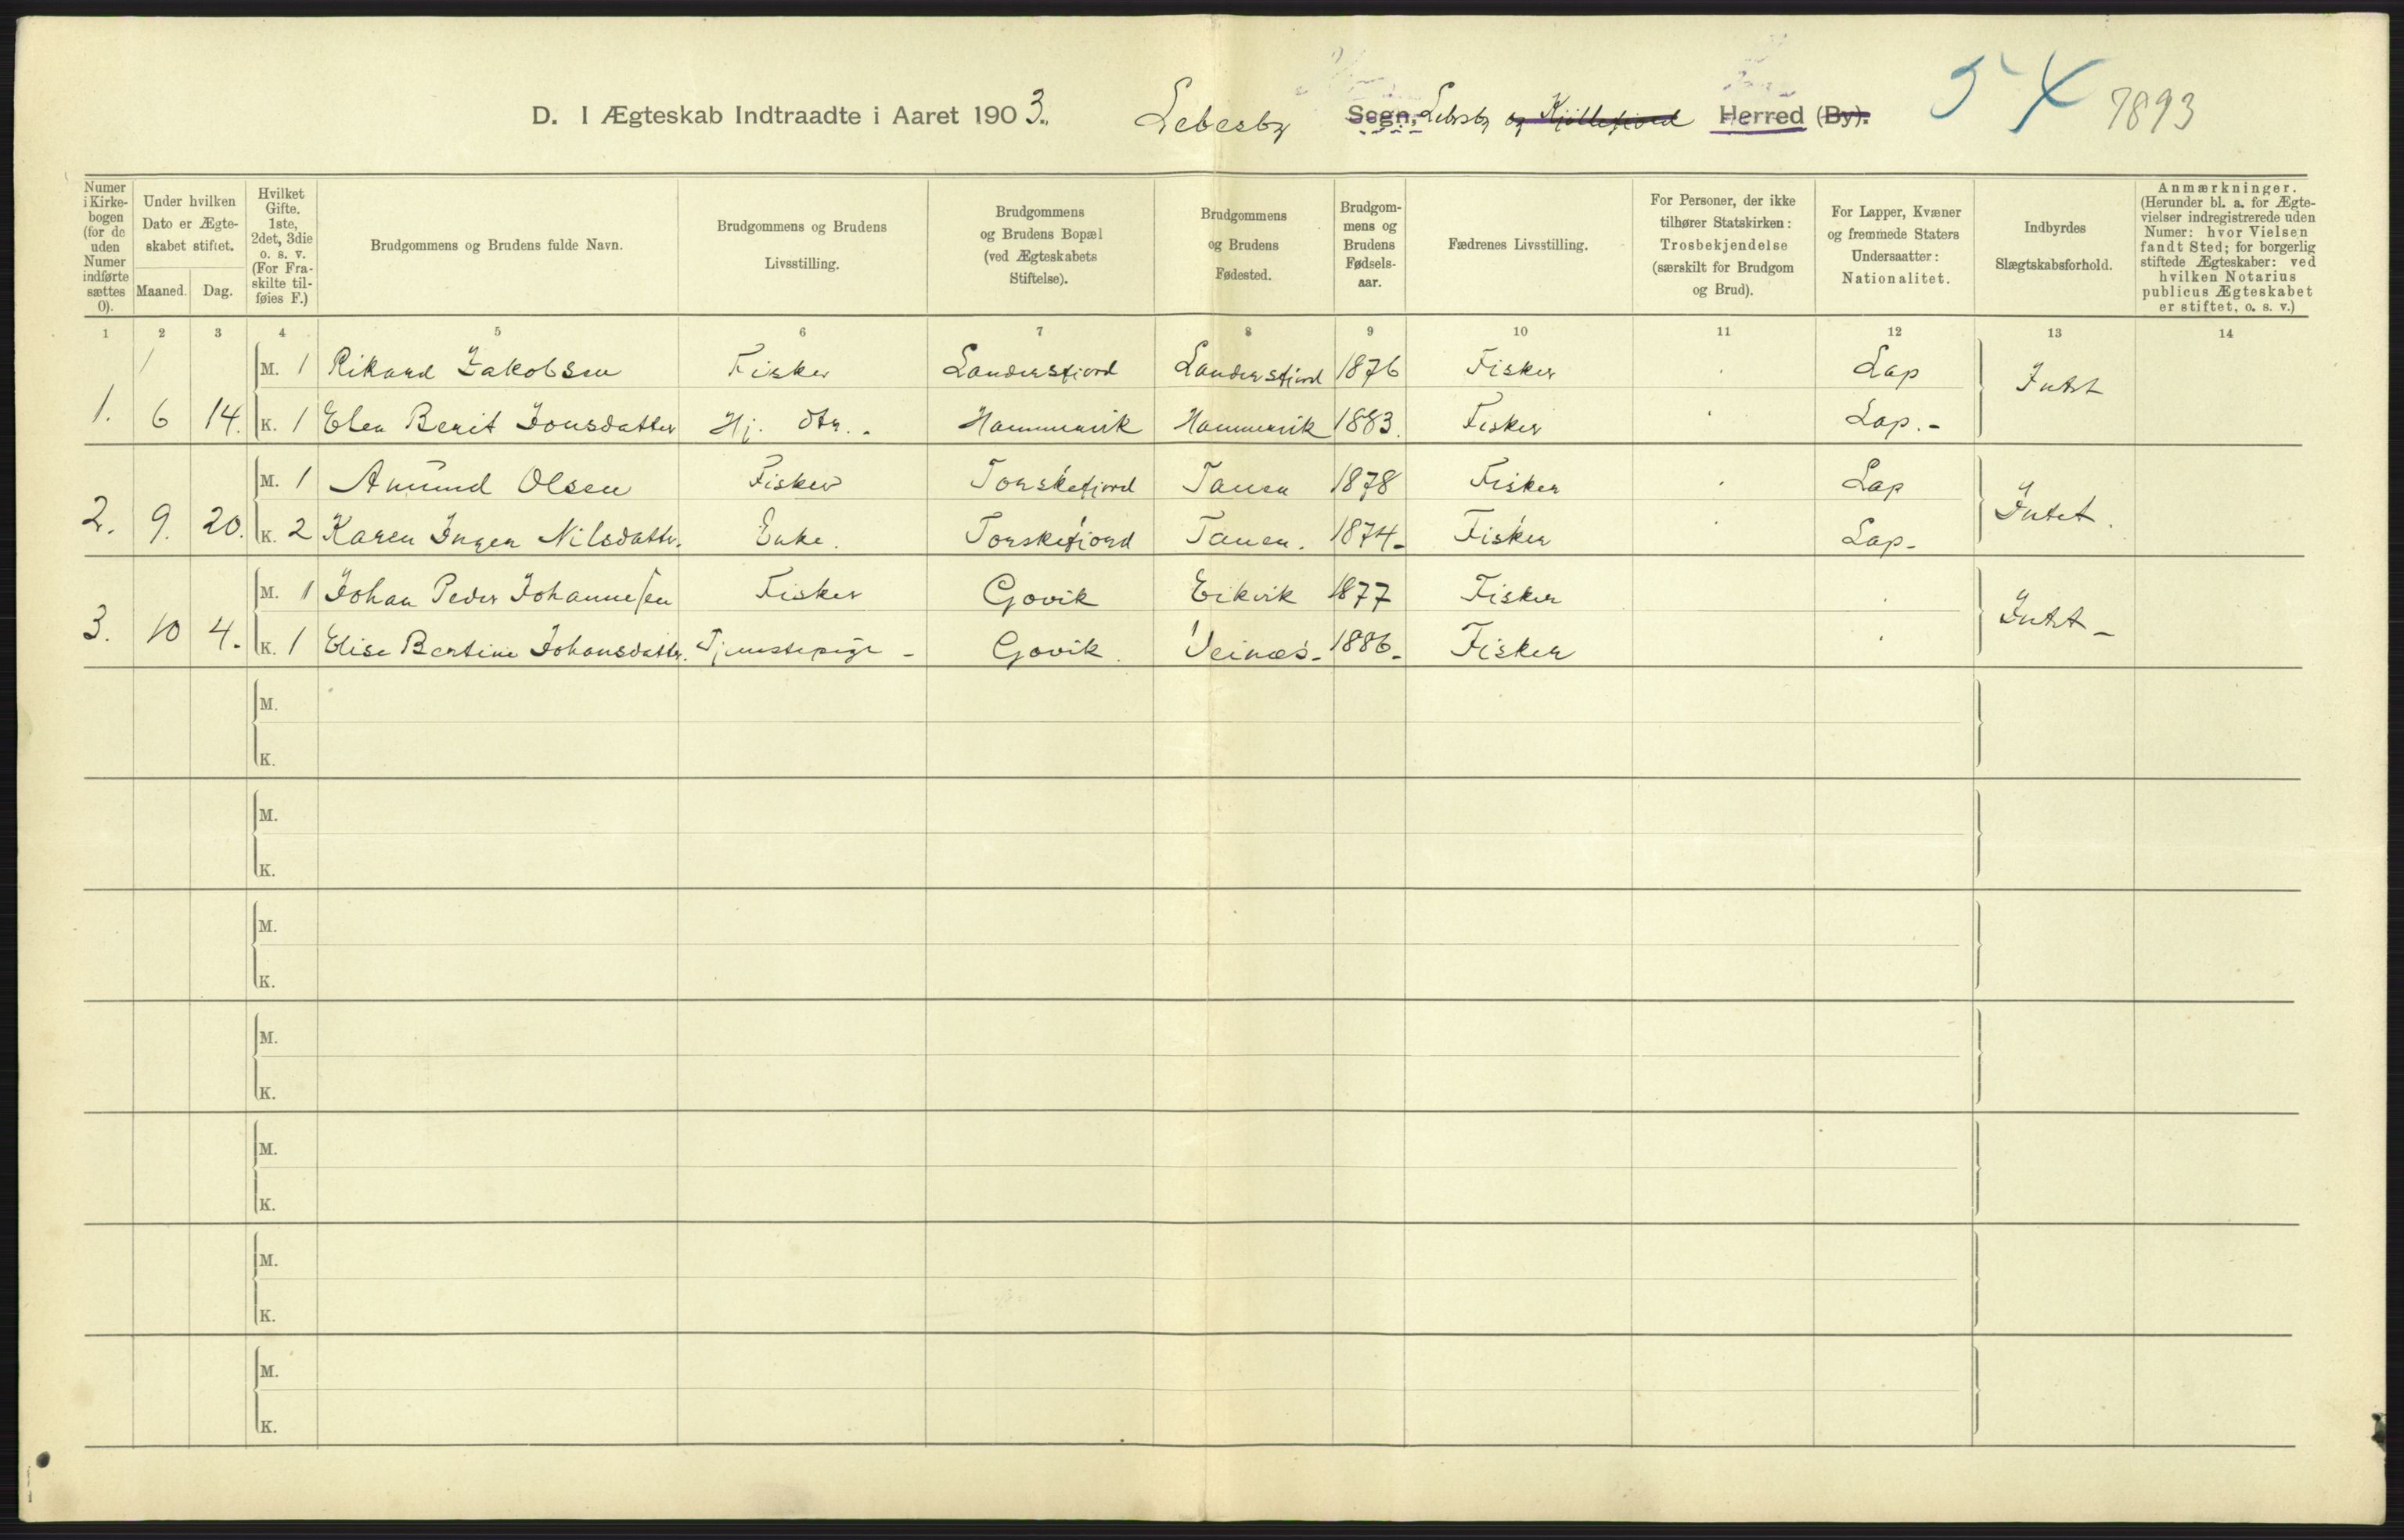 D. I Ægteskab Indtraadte i Aaret 1903. Lebesby Sogn, Lebesby og Kjøllefjord Herred (By). 54 7893
Numer i Kirkebogen (for de uden Numer indførte sættes 0).
Under hvilken Dato er Ægteskabet stiftet.
Maaned. Dag.
Hvilket Gifte. 1ste, 2det, 3die o. s. v. (For Fraskilte tilføies F.)
Brudgommens og Brudens fulde Navn.
Brudgommens og Brudens Livsstilling.
Brudgommens og Brudens Bopæl (ved Ægteskabets Stiftelse).
Brudgommens og Brudens Fødested.
Brudgommens og Brudens Fødselsaar.
Fædrenes Livsstilling.
For Personer, der ikke tilhører Statskirken: Trosbekjendelse (særskilt for Brudgom og Brud).
For Lapper, Kvæner og fremmede Staters Undersaatter: Nationalitet.
Indbyrdes Slægtskabsforhold.
Anmærkninger. (Herunder bl. a. for Ægtevielser indregistrerede uden Numer: hvor Vielsen fandt Sted; for borgerlig stiftede Ægteskaber: ved hvilken Notarius publicus Ægteskabet er stiftet, o. s. v.)
1 2 3 4 5 6 7 8 9 10 11 12 13 14
M. 1 Rikard Jakobsen Fisker Landersfjord Landersfjord 1876 Fisker Lap Intet
1. 6 14. K. 1 Elen Berit Jonsdatter Hj. dtr. Hammervik Hammervik 1883. Fisker Lap.-
M. 1 Amund Olsen Fisker Torskefjord Tanen 1878 Fisker Lap Intet.
2. 9. 20. K. 2 Karen Inger Nilsdattr. Enke. Torskefjord Tanen. 1874- Fisker Lap-
M. 1 Johan Peder Johannesen Fisker Govik Eikvik 1877 Fisker Intet-
3. 10 4. K. 1 Elise Bertine Johansdattr. Tjenestepige - Govik. Veines- 1886- Fisker
M.
K.
M.
K.
M.
K.
M.
K.
M.
K.
M.
K.
M.
K.